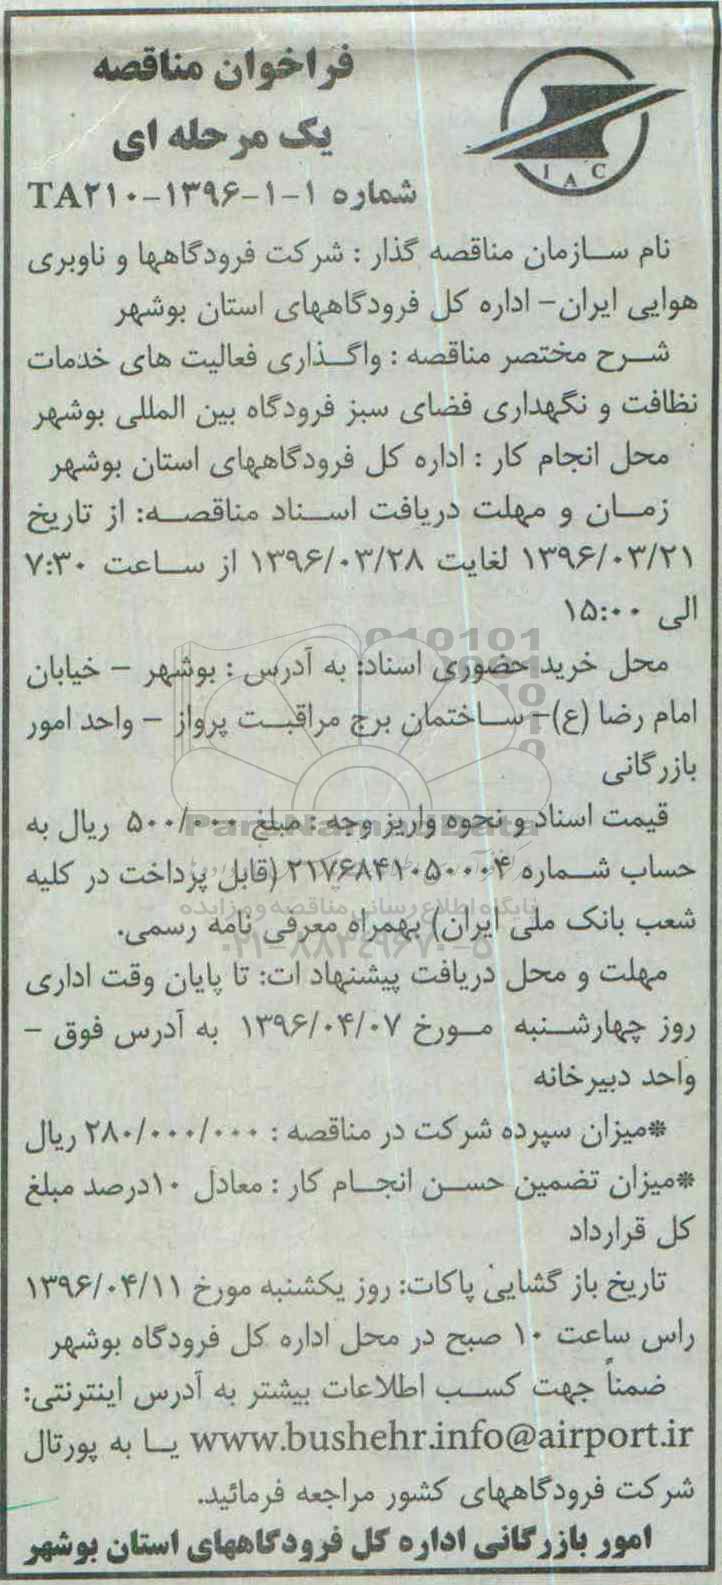 فراخوان مناقصه
یک مرحله ای
شماره ۱-۱-۱۳۹۶-TA۲۱۰
I A C
نام سازمان مناقصه گذار : شرکت فرودگاهها و ناوبری
هوایی ایران- اداره کل فرودگاههای استان بوشهر
شرح مختصر مناقصه : واگذاری فعالیت های خدمات
نظافت و نگهداری فضای سبز فرودگاه بین المللی بوشهر
محل انجام کار : اداره کل فرودگاههای استان بوشهر
زمان و مهلت دریافت اسناد مناقصه: از تاریخ
۱۳۹۶/۰۳/۲۱ لغایت ۱۳۹۶/۰۳/۲۸ از ساعت ۷:۳۰
الی ۱۵:۰۰
محل خرید حضوری اسناد: به آدرس : بوشهر – خیابان
امام رضا (ع)- ساختمان برج مراقبت پرواز – واحد امور
بازرگانی
قیمت اسناد و نحوه واریز وجه : مبلغ ۵۰۰/۰۰۰ ریال به
حساب شماره ۲۱۷۶۸۴۱۰۵۰۰۰۴ (قابل پرداخت در کلیه
شعب بانک ملی ایران) بهمراه معرفی نامه رسمی.
مهلت و محل دریافت پیشنهاد ات: تا پایان وقت اداری
روز چهارشنبه مورخ ۱۳۹۶/۰۴/۰۷ به آدرس فوق –
واحد دبیرخانه
*میزان سپرده شرکت در مناقصه : ۲۸۰/۰۰۰/۰۰۰ ریال
*میزان تضمین حسن انجام کار : معادل ۱۰درصد مبلغ
کل قرارداد
تاریخ باز گشایی پاکات: روز یکشنبه مورخ ۱۳۹۶/۰۴/۱۱
راس ساعت ۱۰ صبح در محل اداره کل فرودگاه بوشهر
ضمناً جهت کسب اطلاعات بیشتر به آدرس اینترنتی:
www.bushehr.info@airport.ir یا به پورتال
شرکت فرودگاههای کشور مراجعه فرمائید.
امور بازرگانی اداره کل فرودگاههای استان بوشهر
ParsNamadData
پایگاه اطلاع رسانی مناقصه و مزایده
۰۲۱-۸۸۳۴۹۶۷۰-۵